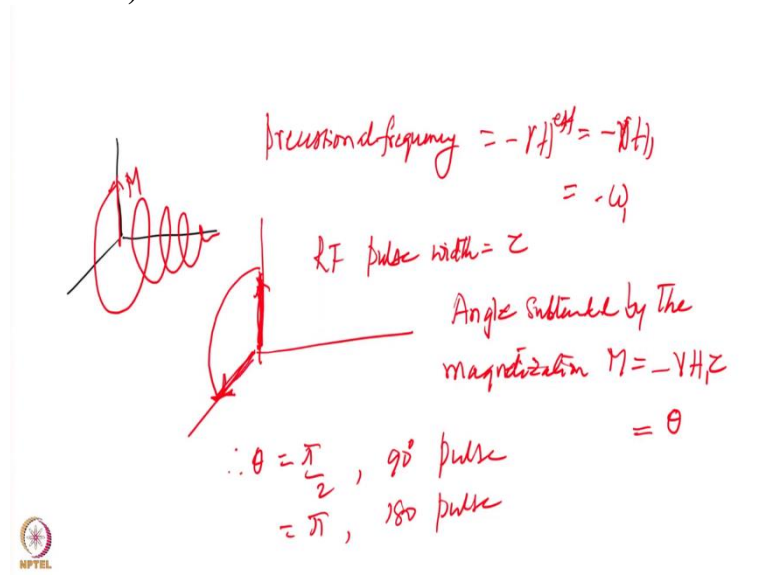 M
precessional frequency = -γH^eff = -γH₁
= -ω₁
RF pulse width = τ
Angle subtended by the
magnetization M = -γH₁τ
= θ
∴ θ = π/2, 90° pulse
= π, 180 pulse
NPTEL